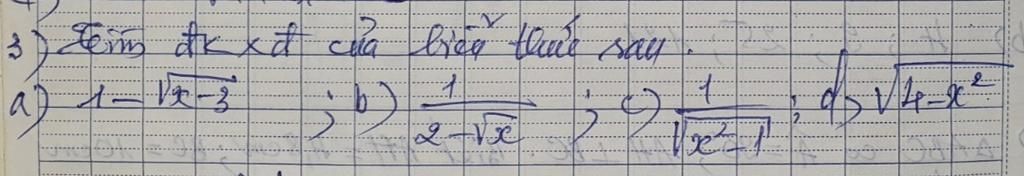 3) Tìm đkxđ của biểu thức sau.
a) 1 - √(x-3) ; b) 1/(2-√x) ; c) 1/√(x²-1) ; d) √(4-x²)